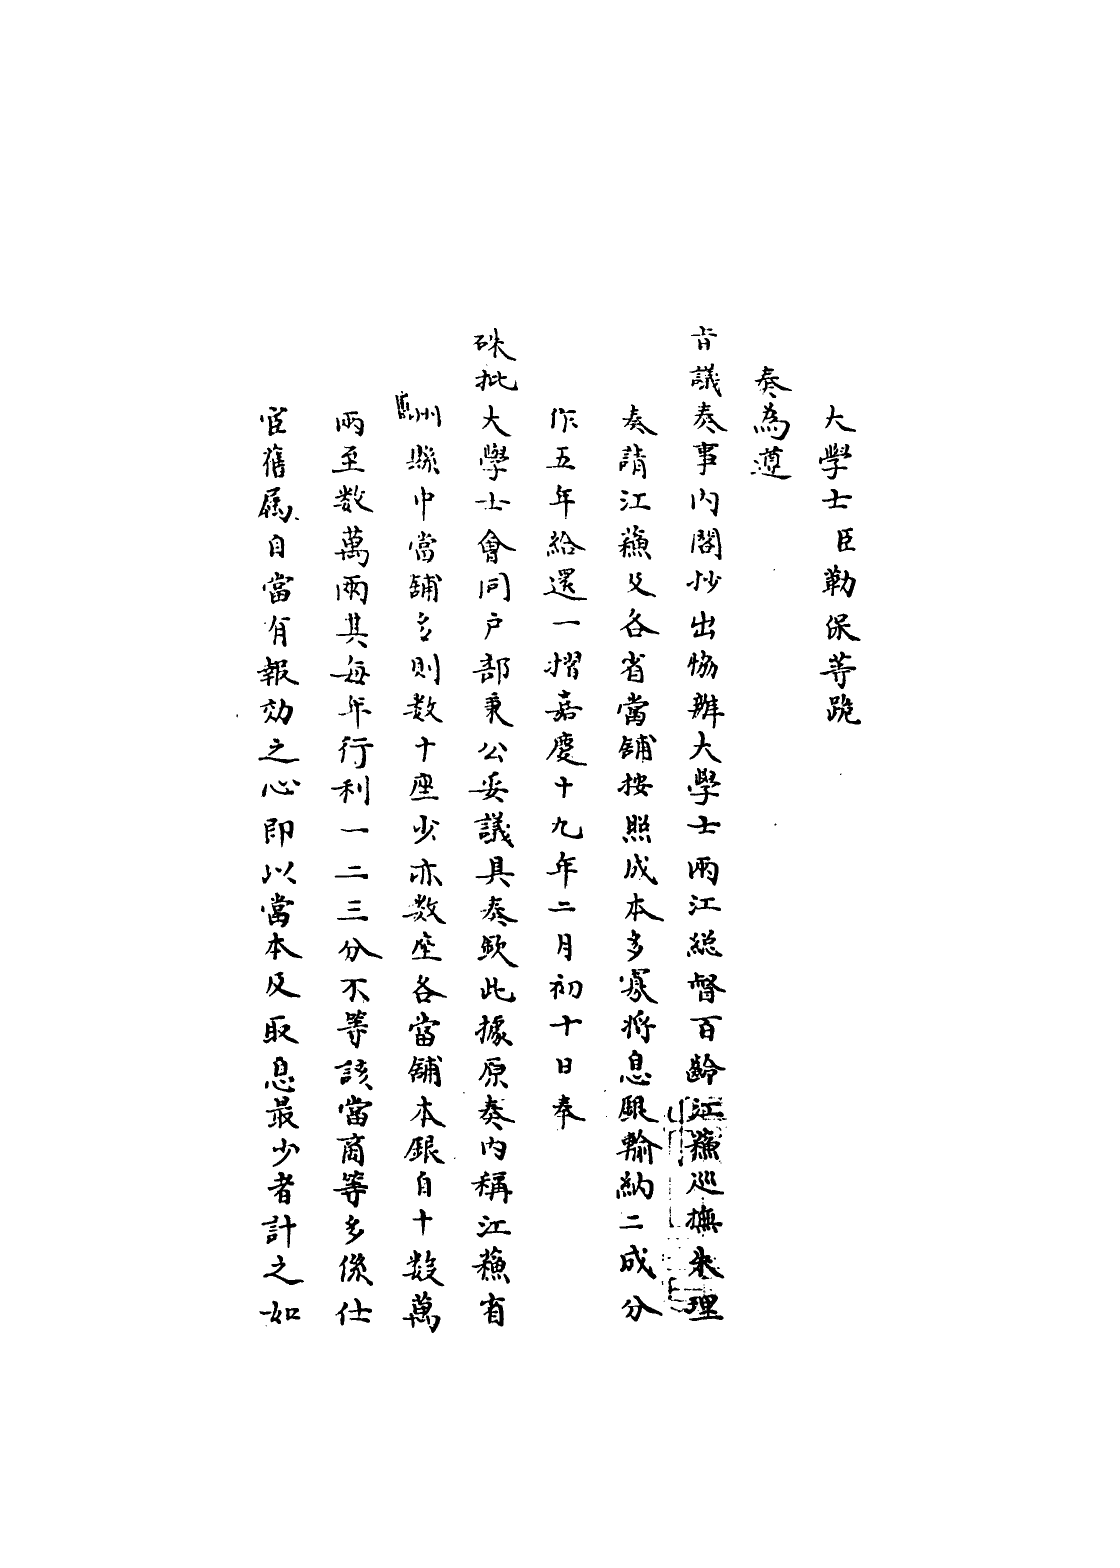 大學士臣勒保等跪
奏為遵
旨議奏事內閣抄出協辦大學士兩江總督百齡江蘇巡撫朱理
奏請江蘇及各省當舖按照成本多寡將息銀輸納二成分
作五年給還一摺嘉慶十九年二月初十日奉
硃批大學士會同戶部秉公妥議具奏欽此據原奏內稱江蘇省
州縣中當舖多則数十座少亦数座各當舖本銀自十數萬
兩至数萬兩其每年行利一二三分不等該當商等多係仕
宦舊属自當有報効之心即以當本及取息最少者計之如